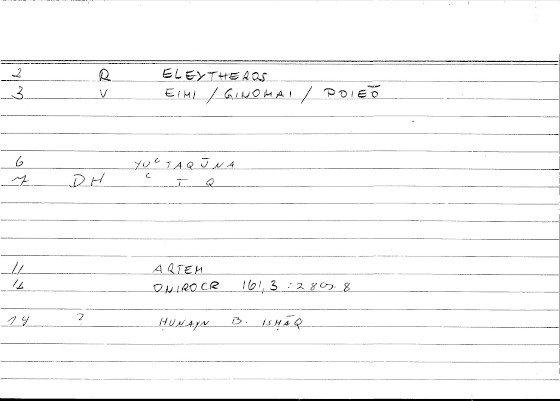 2 R ELEYTHEROS
3 V EIMI / GINOMAI / POIEŌ
6 YUʿTAQŪNA
7 DH ʿ T Q
11 ARTEM
12 ONIROCR 161,3 :
14 2 ḤUNAYN B. ISḤĀQ